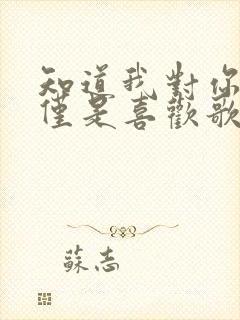 知道我對你
僅是喜歡歌
蘇志